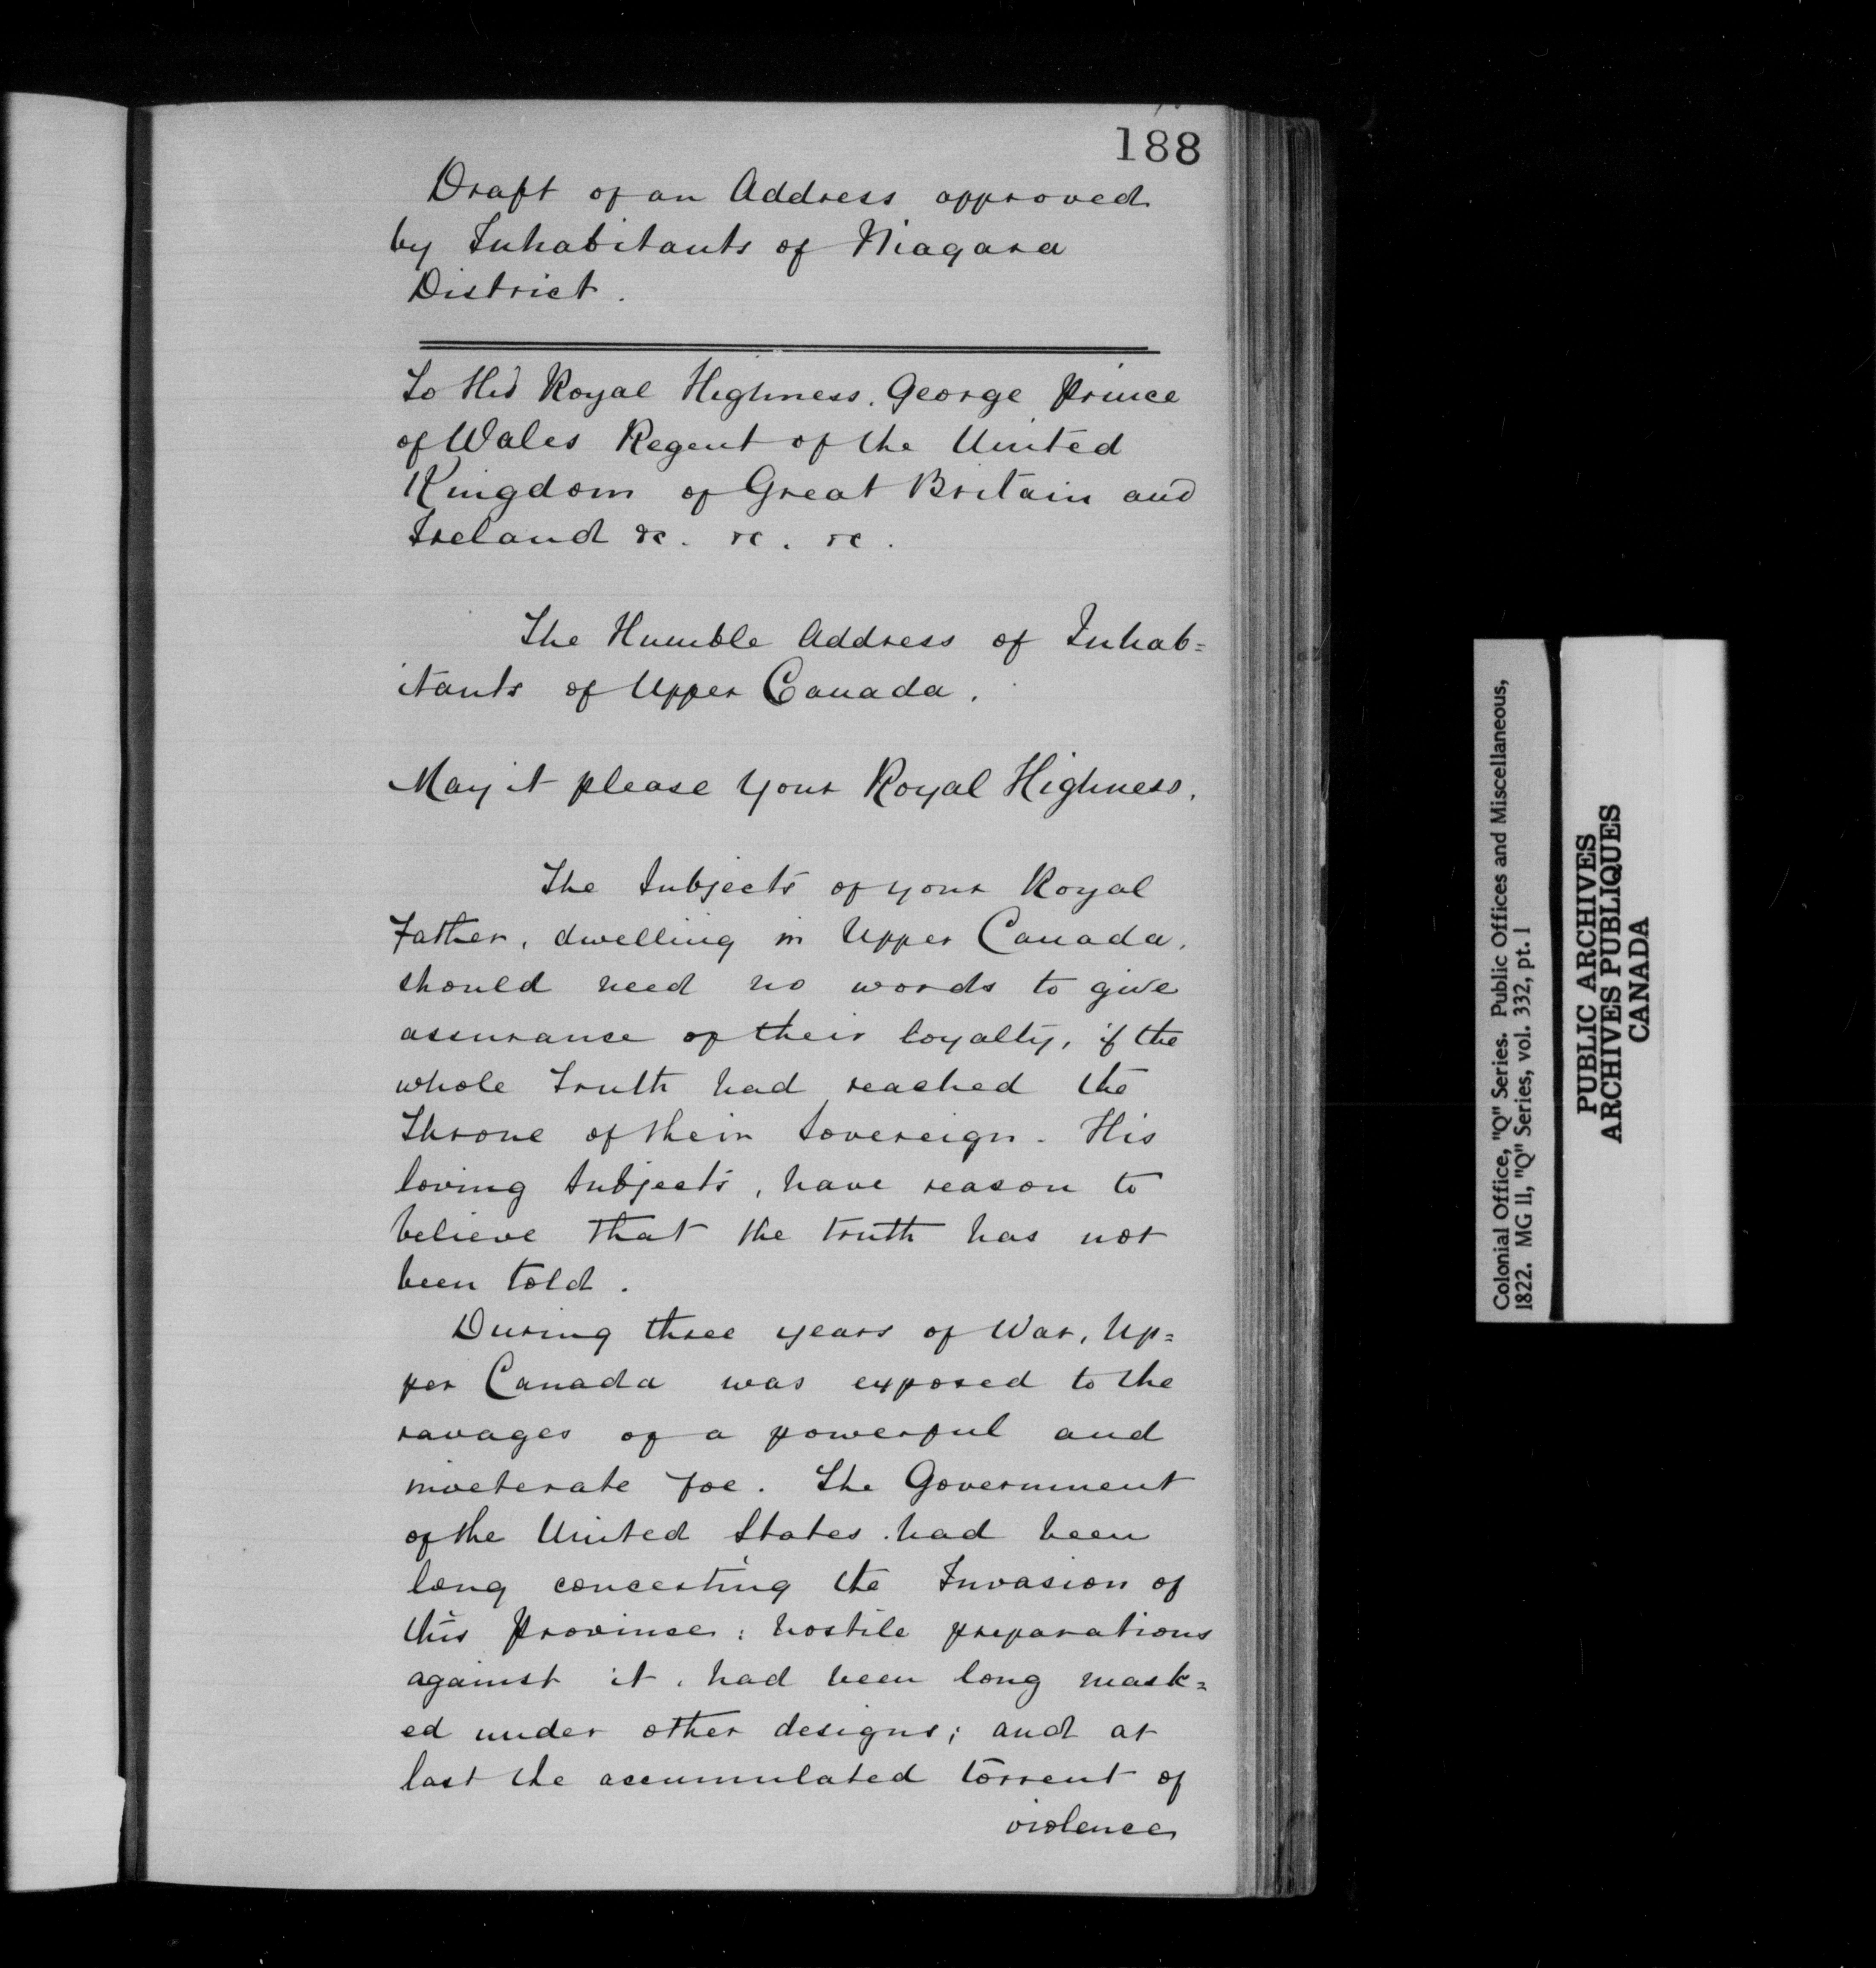 188
Draft of an Address approved
by Inhabitants of Niagara
District.
To His Royal Highness. George Prince
of Wales Regent of the United
Kingdom of Great Britain and
Ireland &c. &c. &c.
The Humble Address of Inhab=
itants of Upper Canada.
May it please your Royal Highness.
The Subjects of your Royal
Father, dwelling in Upper Canada,
should need no words to give
assurance of their loyalty, if the
whole truth had reached the
Throne of their Sovereign. His
loving Subjects, have reason to
believe that the truth has not
been told.
During three years of War, Up=
per Canada was exposed to the
ravages of a powerful and
inveterate foe. The Government
of the United States had been
long concerting the Invasion of
this Province: hostile preparations
against it, had been long mask=
ed under other designs; and at
last the accumulated torrent of
violence
Colonial Office, "Q" Series. Public Offices and Miscellaneous,
1822. MG 11, "Q" Series, vol. 332, pt. 1
PUBLIC ARCHIVES
ARCHIVES PUBLIQUES
CANADA